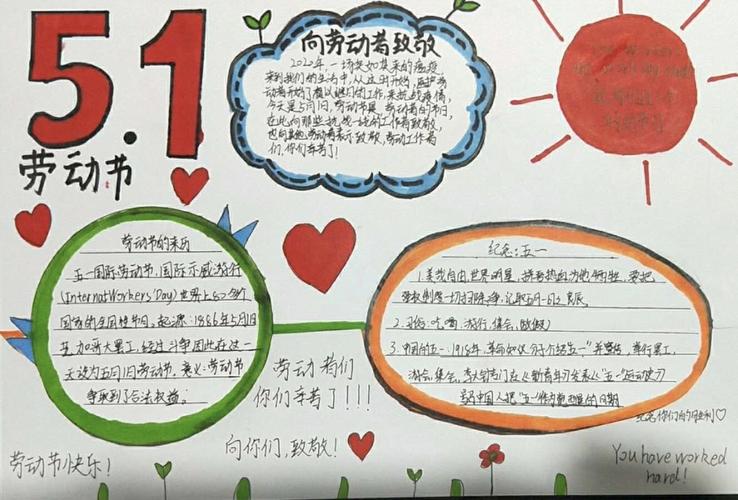 5.1
劳动节
向劳动者致敬
2020年,一场突如其来的瘟疫
来到我们的生活中,从这时开始,医护劳
动者开始了夜以继日的工作,来抗战疫情,
今天是5月1日,劳动节是劳动者的节日,
在此向那些抗战一线的工作者致敬,
也向其他劳动者表示致敬,劳动工作者
们,你们辛苦了!
劳动节的来历
五一国际劳动节,国际示威游行
(InternatWorkers'Day)世界上80多个
国家的全国性节日。起源:1886年5月1日
芝加哥大罢工,经过斗争因此在这一
天设为五月1日劳动节。意义:劳动节
争取到了合法权益。
纪念:五一
1.美哉自由,世界明星,拼吾热血为他牺牲,要把
强权制度一切扫除净,记取五月一日之良辰。
2.习俗:游行,集会,放假)
3.中国的五一,1918年,革命知识分子介绍"五一"并宣传,举行罢工,
游行集会,李大钊专门在《新青年》发表《"五一"运动史》
劳动者们
你们辛苦了!!!
纪念你们的胜利♡
劳动节快乐!
向你们,致敬!
You have worked
hard!